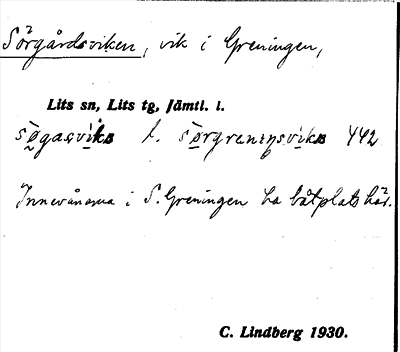 Sörgårdsviken, vik i Greningen,
Lits sn, Lits tg, Jämtl. l.
sø̀gasvikɐ l. sørgreniŋsvikɐ 442
Innevånarna i S. Greningen ha båtplats här.
C. Lindberg 1930.